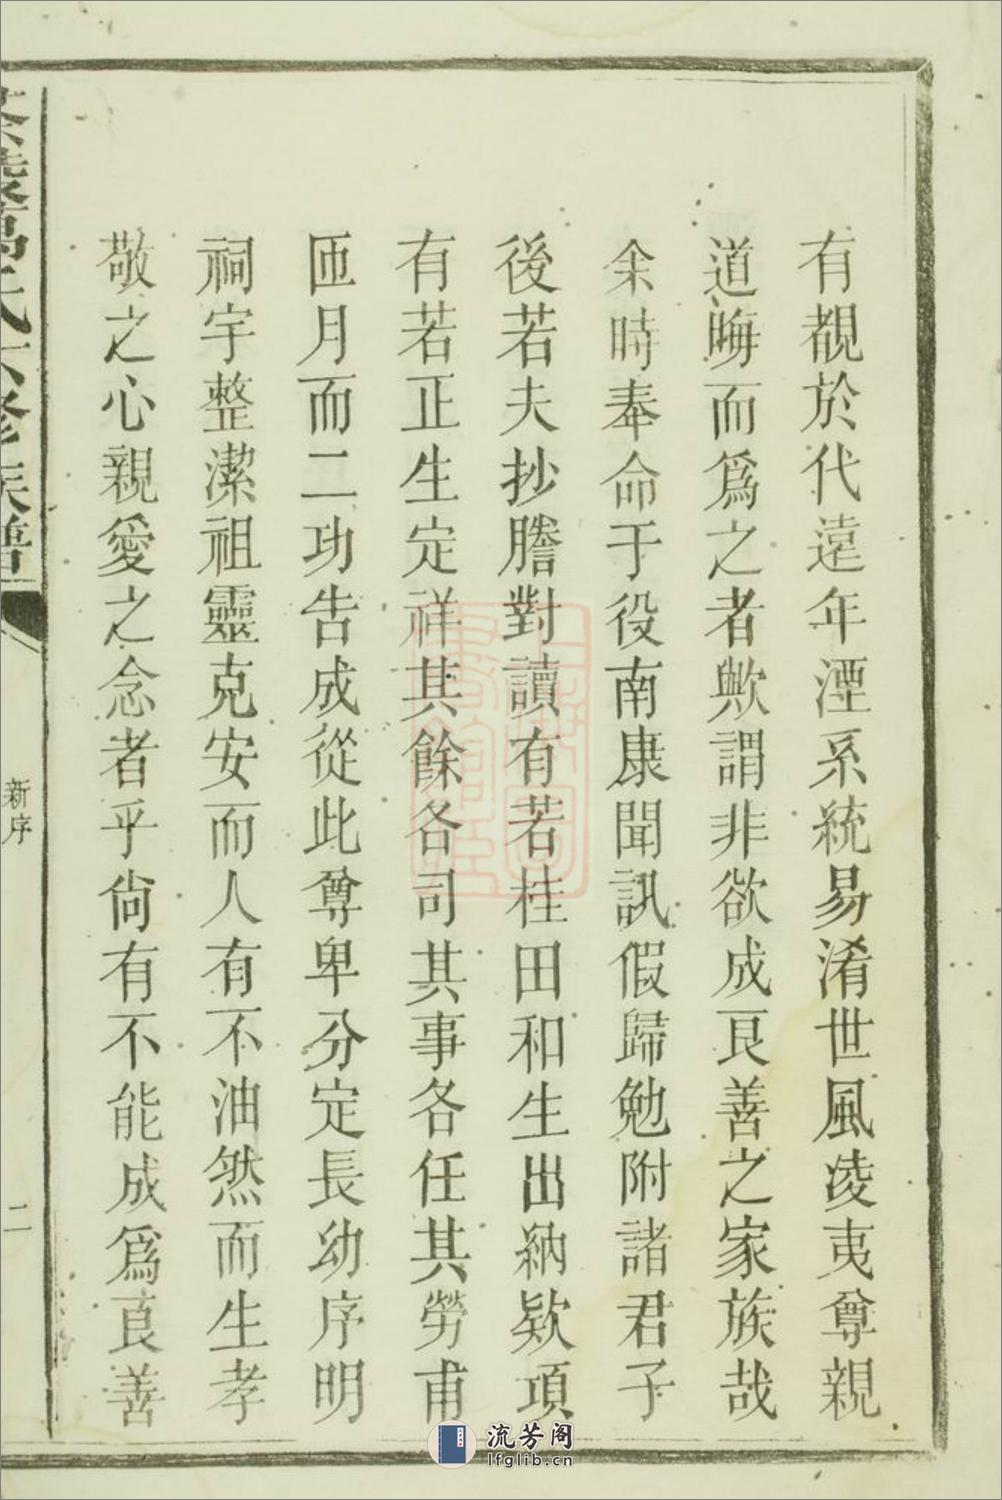 有覩於代遠年湮系統易淆世風凌夷尊親
道晦而爲之者歟謂非欲成良善之家族哉
余時奉命于役南康聞訊假歸勉附諸君子
後若夫抄謄對讀有若桂田和生出納欵項
有若正生定祥其餘各司其事各任其勞甫
匝月而二功告成從此尊卑分定長幼序明
祠宇整潔祖靈克安而人有不油然而生孝
敬之心親愛之念者乎尙有不能成爲良善
氏六修族譜
新序
二
上海圖書館藏
流芳阁
lfglib.cn